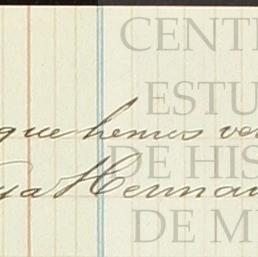 CENT
ESTU
que hemos
DE HIS
ya Hernan
DE M